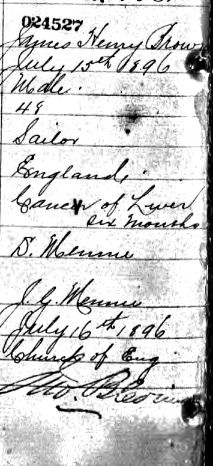 024527
James Henry Brown
July 15th 1896
Male.
49
Sailor
England.
Cancer of Liver
six months
D. Mennie
J. G. Mennie
July 16th 1896
Church of Eng